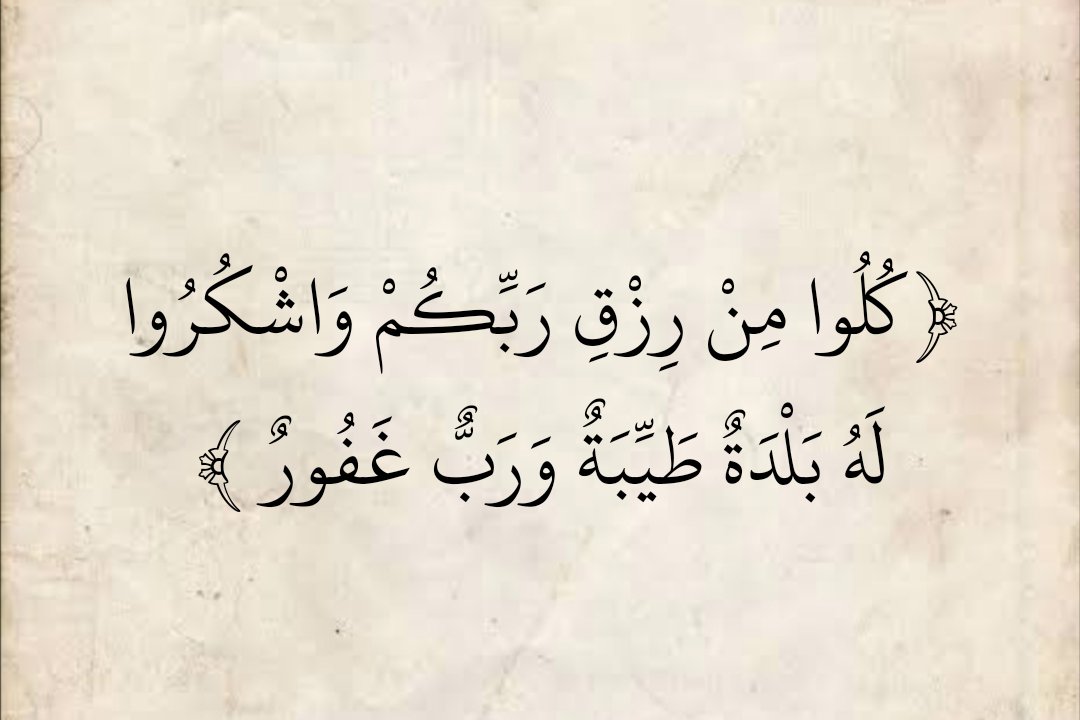 ﴿كُلُوا مِنْ رِزْقِ رَبِّكُمْ وَاشْكُرُوا
لَهُ بَلْدَةٌ طَيِّبَةٌ وَرَبٌّ غَفُورٌ ﴾